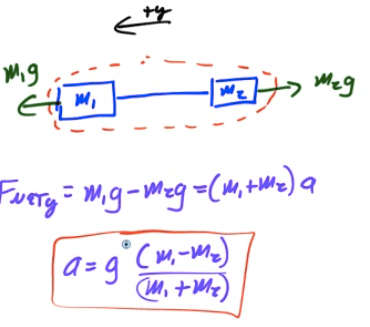 +y
m₁g
m₁
m₂
m₂g
F_NETy = m₁g - m₂g = (m₁+m₂) a
a = g (m₁-m₂) / (m₁+m₂)